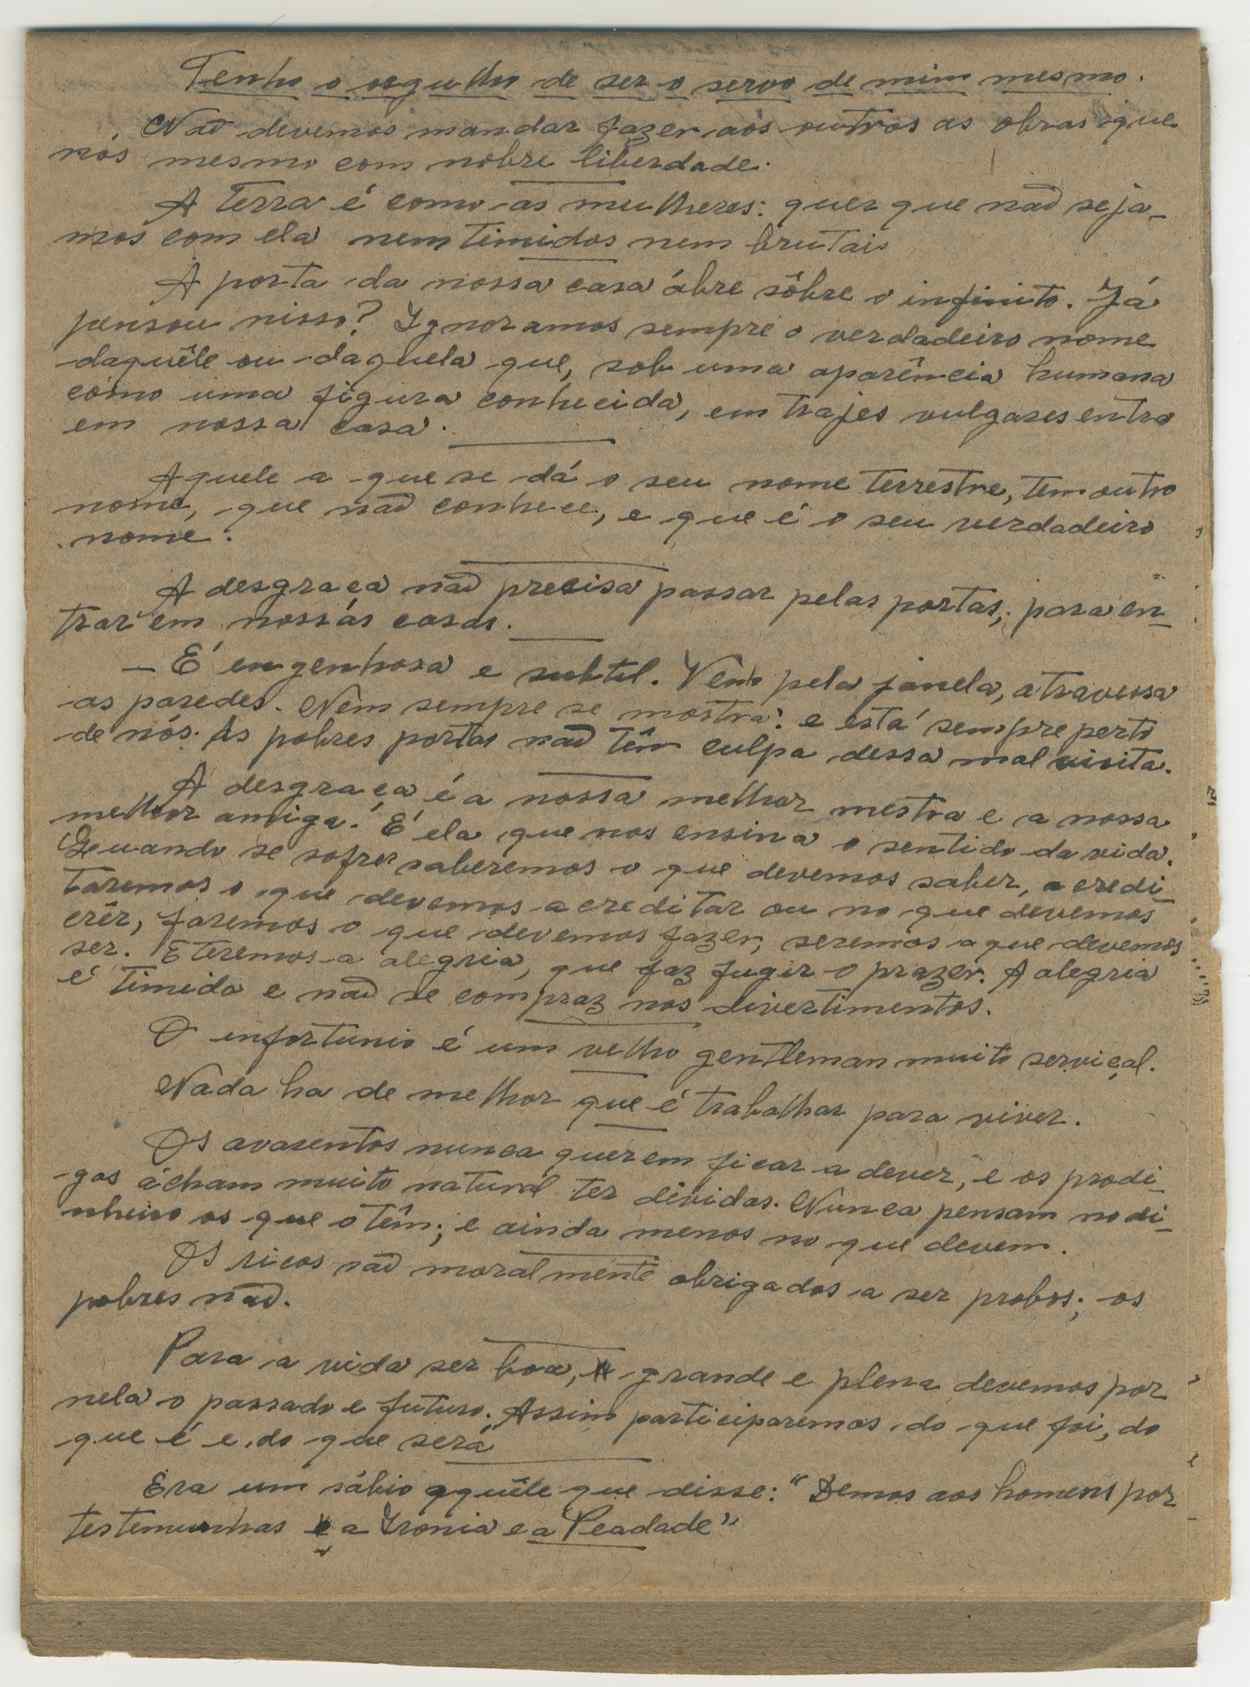 Tenho o orgulho de ser o servo de mim mesmo.
Não devemos mandar fazer aos outros as obras que
nos mesmo com nobre liberdade.
A Terra é como as mulheres: quer que não seja-
mos com ela nem timidos nem brutais
A porta da nossa casa ábre sôbre o infinito. Já
pensou nisso? Ignoramos sempre o verdadeiro nome
daquêle ou daquela que, sob uma aparência humana
como uma figura conhecida, em trajes vulgares entra
em nossa casa.
Aquele a que se dá o seu nome terrestre, tem outro
nome, que não conhece, e que é o seu verdadeiro
nome.
A desgraça não precisa passar pelas portas, para en-
trar em nossas casas.
- É engenhosa e subtil. Vem pela janela, atravessa
as paredes. Nem sempre se mostra: e está sempre perto
de nós. As pobres portas não têm culpa dessa mal visita.
A desgraça é a nossa melhor mestra e a nossa
melhor amiga. É ela que nos ensina o sentido da vida.
Quando se sofrer saberemos o que devemos saber, acredi-
taremos o que devemos acreditar ou no que devemos
crêr, faremos o que devemos fazer, seremos o que devemos
ser. E teremos a alegria, que faz fugir o prazer. A alegria
é timida e não se compraz nos divertimentos.
O infortunio é um velho gentleman muito serviçal.
Nada ha de melhor que é trabalhar para viver.
Os avarentos nunca querem ficar a dever, e os prodi-
gos ácham muito natural ter dividas. Nunca pensam no di-
nheiro os que o têm; e ainda menos no que devem.
Os ricos são moralmente obrigados a ser probos; os
pobres não.
Para a vida ser boa, grande e plena devemos por
nela o passado e futuro. Assim participaremos do que foi, do
que é e do que será
Era um sábio aquêle que disse: "Demos aos homens por
testemunhas a Ironia e a Peadade"